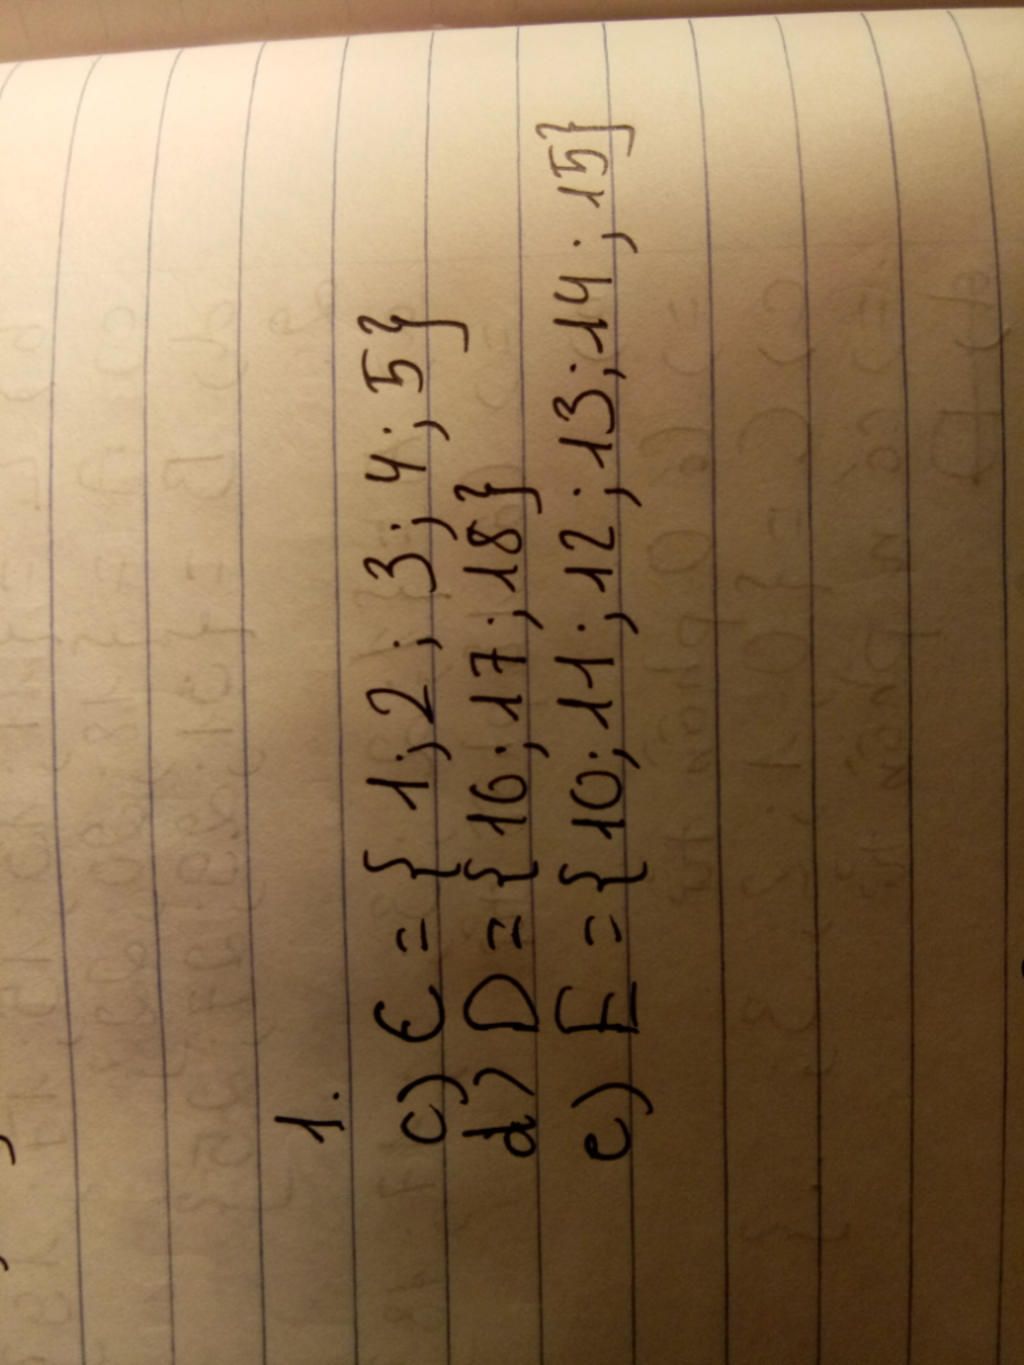 1.
c) C = { 1; 2; 3; 4; 5}
d) D = {16; 17; 18}
e) E = {10; 11; 12; 13; 14; 15}